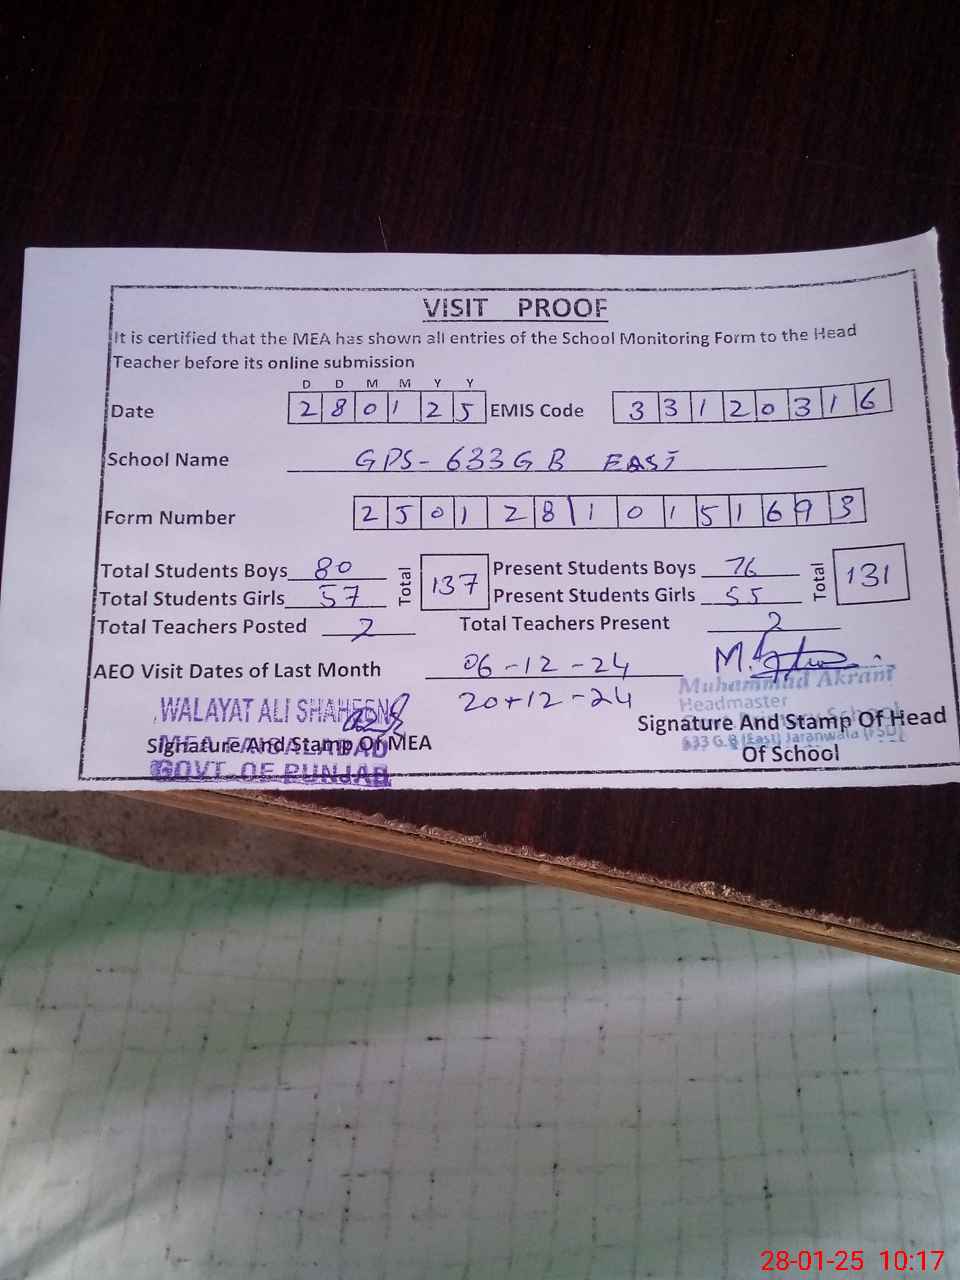 VISIT PROOF
It is certified that the MEA has shown all entries of the School Monitoring Form to the Head
Teacher before its online submission
D D M M Y Y
Date 2 8 0 1 2 5 EMIS Code 3 3 1 2 0 3 1 6
School Name GPS-633 GB EAST
Form Number 2 5 0 1 2 8 1 0 1 5 1 6 9 3
Total Students Boys 80 Total 137 Present Students Boys 76 Total 131
Total Students Girls 57 Present Students Girls 55
Total Teachers Posted 2 Total Teachers Present 2
AEO Visit Dates of Last Month 06-12-24
20-12-24
WALAYAT ALI SHAHEEN
Signature And Stamp Of MEA
MEA FAISALABAD
GOVT. OF PUNJAB
Muhammad Akram
Headmaster
School
Signature And Stamp Of Head
633 G.B (East) Jaranwala (FSD)
Of School
28-01-25 10:17